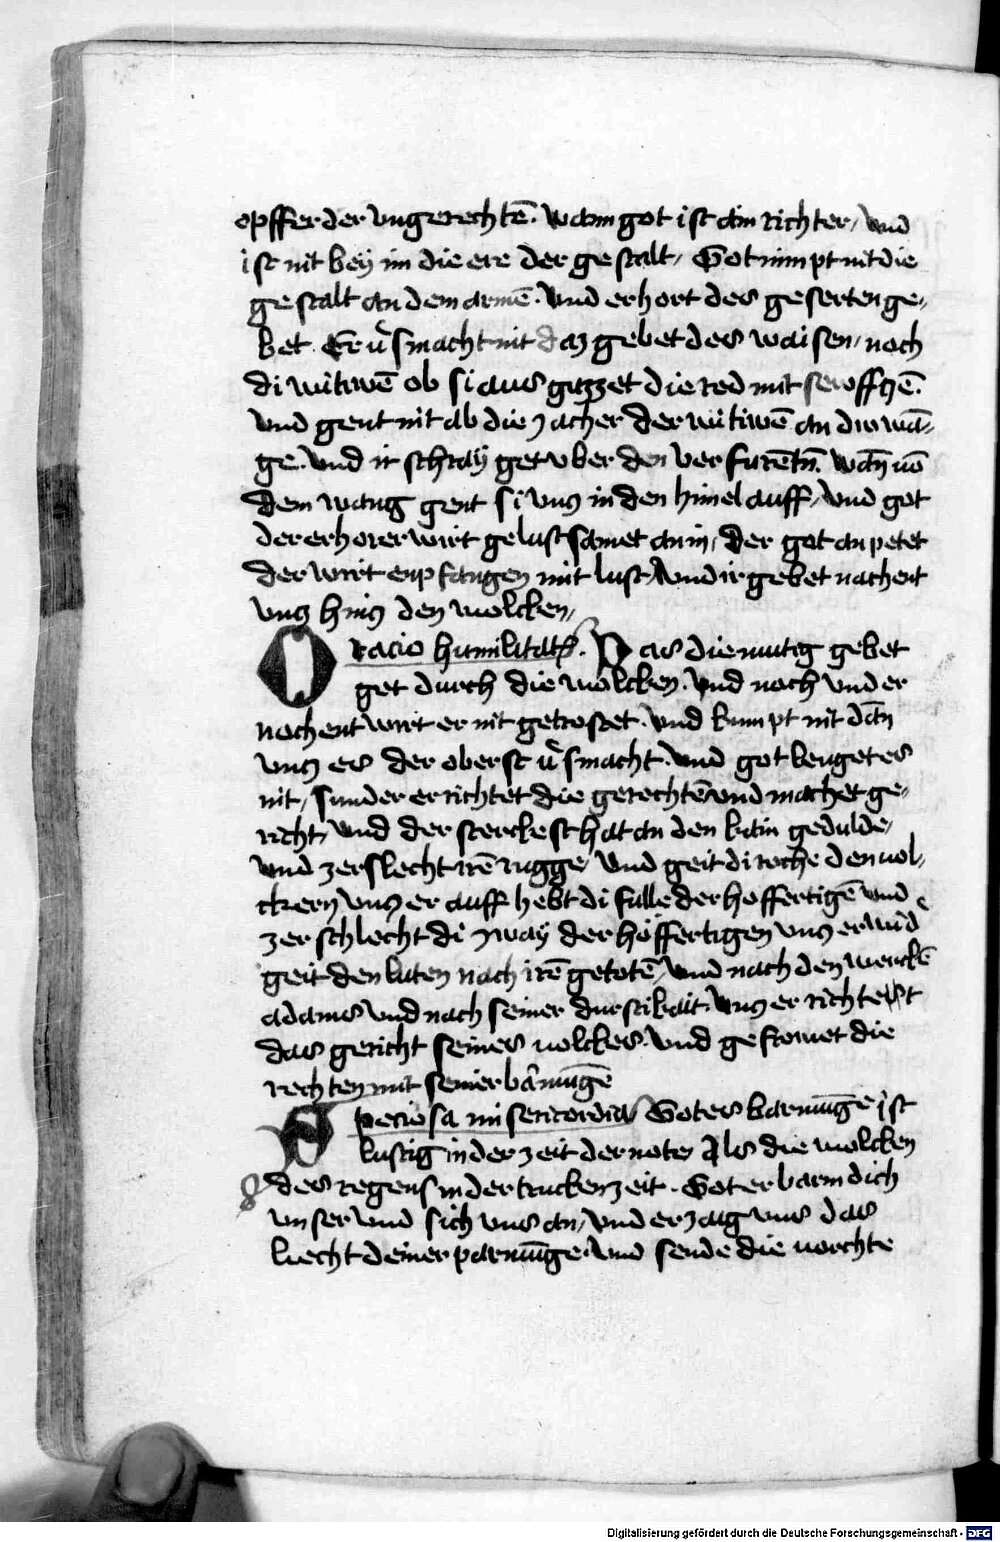 opffer der vngerechtē. wann got ist ain richter, vnd
ist nit bey im die ere der gestalt, Got nimpt nit die
gestalt an dem armē. vnd erhort des geserten ge-
bet. Er v̂smacht nit daz gebet des waisen, noch
di witiwē ob si aus guzzet die red mit sewffczē.
vnd gent nit ab die zacher der witiwē an diw wā-
ge. vnd ir schray get vber den verfurētn. wan̄ uō
dem wang gent si vncz in den himel auff, vnd got
der erhorer wirt gelustsamet an in, der got an petet
der wirt enpfangen mit lust, vnd ir gebet nachent
vncz hincz den wolcken,
Oracio humilitatꝭ. Das diemutig gebet
get durch die wolcken. vnd noch vnd er
nochent wirt er nit getrostet. vnd kumpt nit dan̄
vncz es der oberst v̂smacht. vnd got lenget es
nit, sunder er richtet die gerechtē vnd machet ge-
richt, vnd der sterckest hat an den kain gedulde,
vnd zerslecht irē rugge, vnd geit di roche den uol-
ckern vncz er auff hebt di fulle der hoffertigē vnd
zerschlecht di zway der hoffertigen vncz er wid̄
geit den luten nach irē getotē, vnd nach den werckē
adams vnd nach seiner durstikait. vncz er richtet
das gericht seines uolckes. vnd gefrowet die
rechten mit seiner barmūge
Speciosa misericordia Gotes barmūge ist
lustig in der zeit der note Als die wolcken
des regens in der trucken zeit. Got erbarm dich
vnser vnd sich vns an, vnd erzaig vns das
liecht deiner parmūge. vnd sende die uorchte
Digitalisierung gefördert durch die Deutsche Forschungsgemeinschaft - DFG